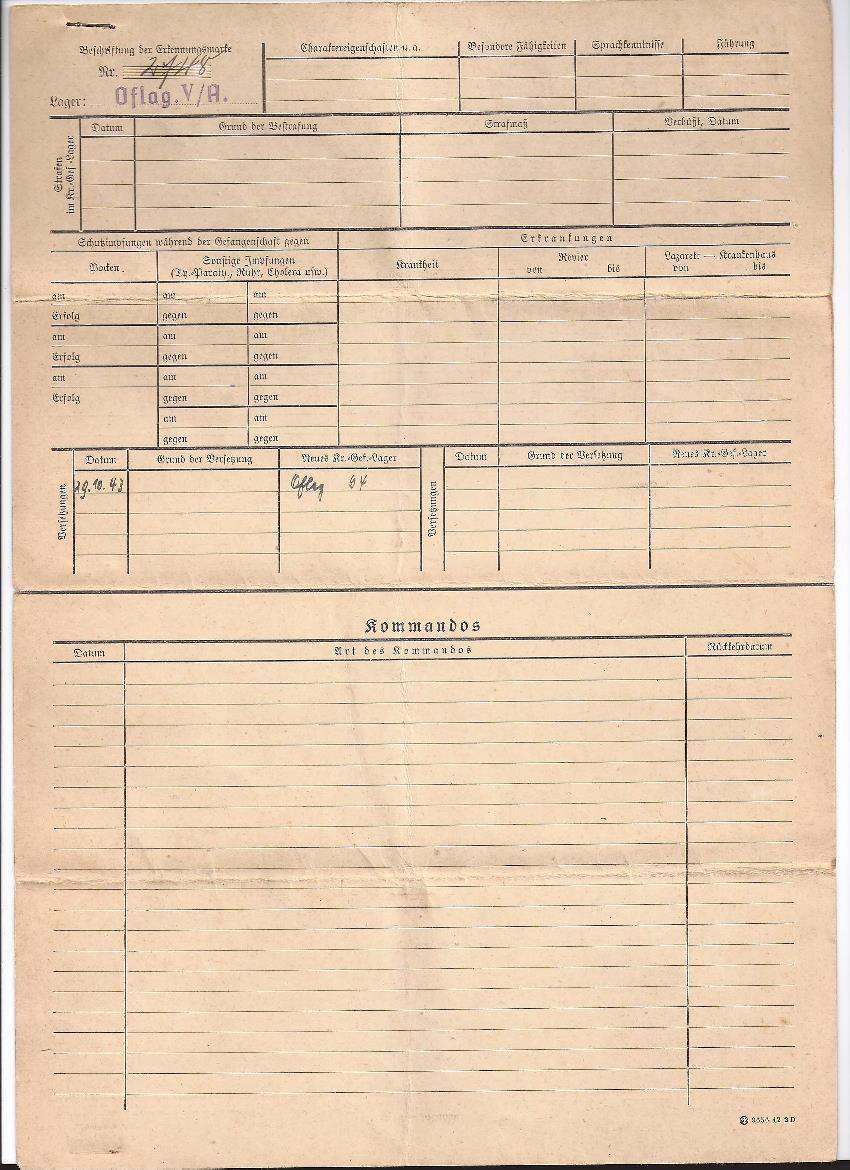 Beschriftung der Erkennungsmarke
Nr.
Lager: Oflag. V/A.
Charaktereigenschaften u. a.
Besondere Fähigkeiten
Sprachkenntnisse
Führung
Strafen
im Kr.-Gef.-Lager
Datum
Grund der Bestrafung
Strafmaß
Verbüßt, Datum
Schutzimpfungen während der Gefangenschaft gegen
Erkrankungen
Pocken
Sonstige Impfungen
(Ty.-Paraty., Ruhr, Cholera usw.)
Krankheit
Revier
von bis
Lazarett — Krankenhaus
von bis
am am am
Erfolg gegen gegen
am am am
Erfolg gegen gegen
am am am
Erfolg gegen gegen
am am
gegen gegen
Versetzungen
Datum
Grund der Versetzung
Neues Kr.-Gef.-Lager
29.10.43 Oflag 64
Versetzungen
Datum
Grund der Versetzung
Neues Kr.-Gef.-Lager
Kommandos
Datum
Art des Kommandos
Rückkehrdatum